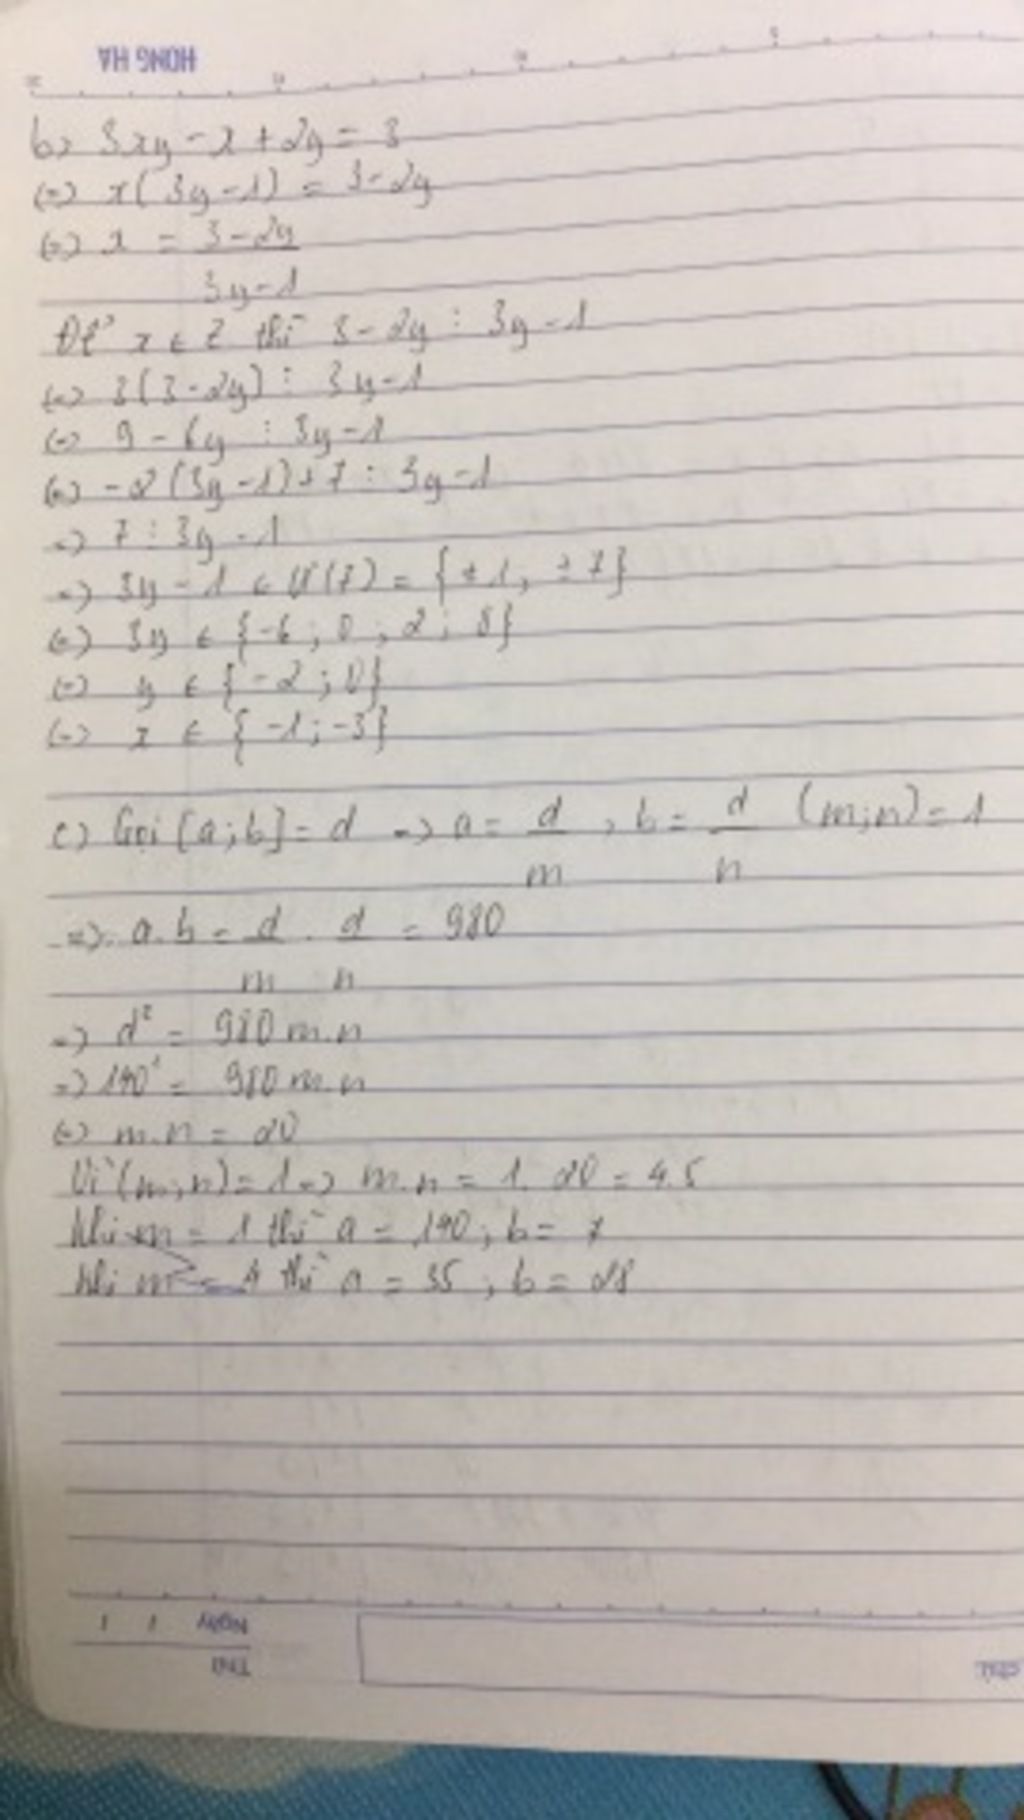 HONG HA
b) 3xy - x + 2y = 3
(=) x(3y-1) = 3-2y
(=) x = 3-2y
3y-1
Để x ∈ Z thì 3-2y ⋮ 3y-1
(=) 3(3-2y) ⋮ 3y-1
(=) 9-6y ⋮ 3y-1
(=) -2(3y-1)+7 ⋮ 3y-1
=) 7 ⋮ 3y-1
=) 3y-1 ∈ Ư(7) = {±1, ±7}
(=) 3y ∈ {-6; 0; 2; 8}
(=) y ∈ {-2; 0}
(=) x ∈ {-1; -3}
c) Gọi [a;b] = d =) a = d , b = d (m;n) = 1
m n
=) a.b = d . d = 980
m n
=) d² = 980 m.n
=) 140² = 980 m.n
(=) m.n = 20
Vì (m;n)=1 =) m.n = 1.20 = 4.5
Khi m = 1 thì a = 140; b = 7
Khi m = 4 thì a = 35; b = 28
Ngày / /
Thứ